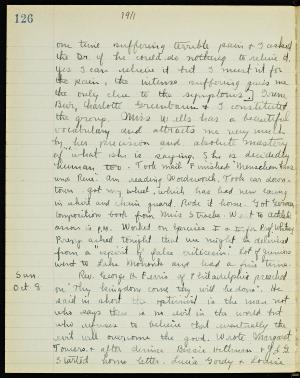 126
1911
one time suffering terrible pain & I asked
the Dr. if he could do nothing to relieve it.
Yes I can relieve it but I must not for
the pain, the intense suffering gives me
the only clue to the symptoms". Irene
Beir, Charlotte Greenbaum & I constituted
the group. Miss Wells has a beautiful
vocabulary and attracts me very much
by her precision and absolute mastery
of what she is saying. She is decidedly
human, too. Took mail. Finished "Menschen
und Reue". Am reading Wordsworth. Took car down-
town, got my wheel, which has had new
a skirt and chain guard. Rode it home. Got German
composition book from Miss Stracks. W. & to
is P.M. Worked on I & II for Prof. Whitney
Prexy asked tonight that we might be delivered
from a "spirit of false criticism". Lot of
went to Lake Mohonk and had a fine time.
Sun
Oct. 8
Rev. George A. Ferris of Philadelphia preached
on "Thy kingdom come thy will be done". He
said in short the optimist is the man not
who says there is no evil in the world but
who refuses to believe that eventually the
evil will overcome the good. Wrote Margaret
Towers & after dinner Bessie &
Started home letter. Lucie Gordy & Louise